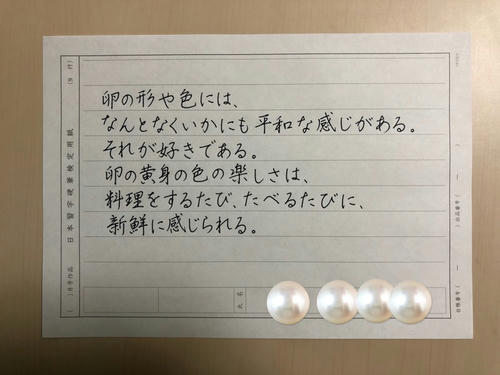 卵の形や色には、
なんとなくいかにも平和な感じがある。
それが好きである。
卵の黄身の色の楽しさは、
料理をするたび、たべるたびに、
新鮮に感じられる。
日本習字硬筆検定用紙
(9 行)
( )月手作品
氏名